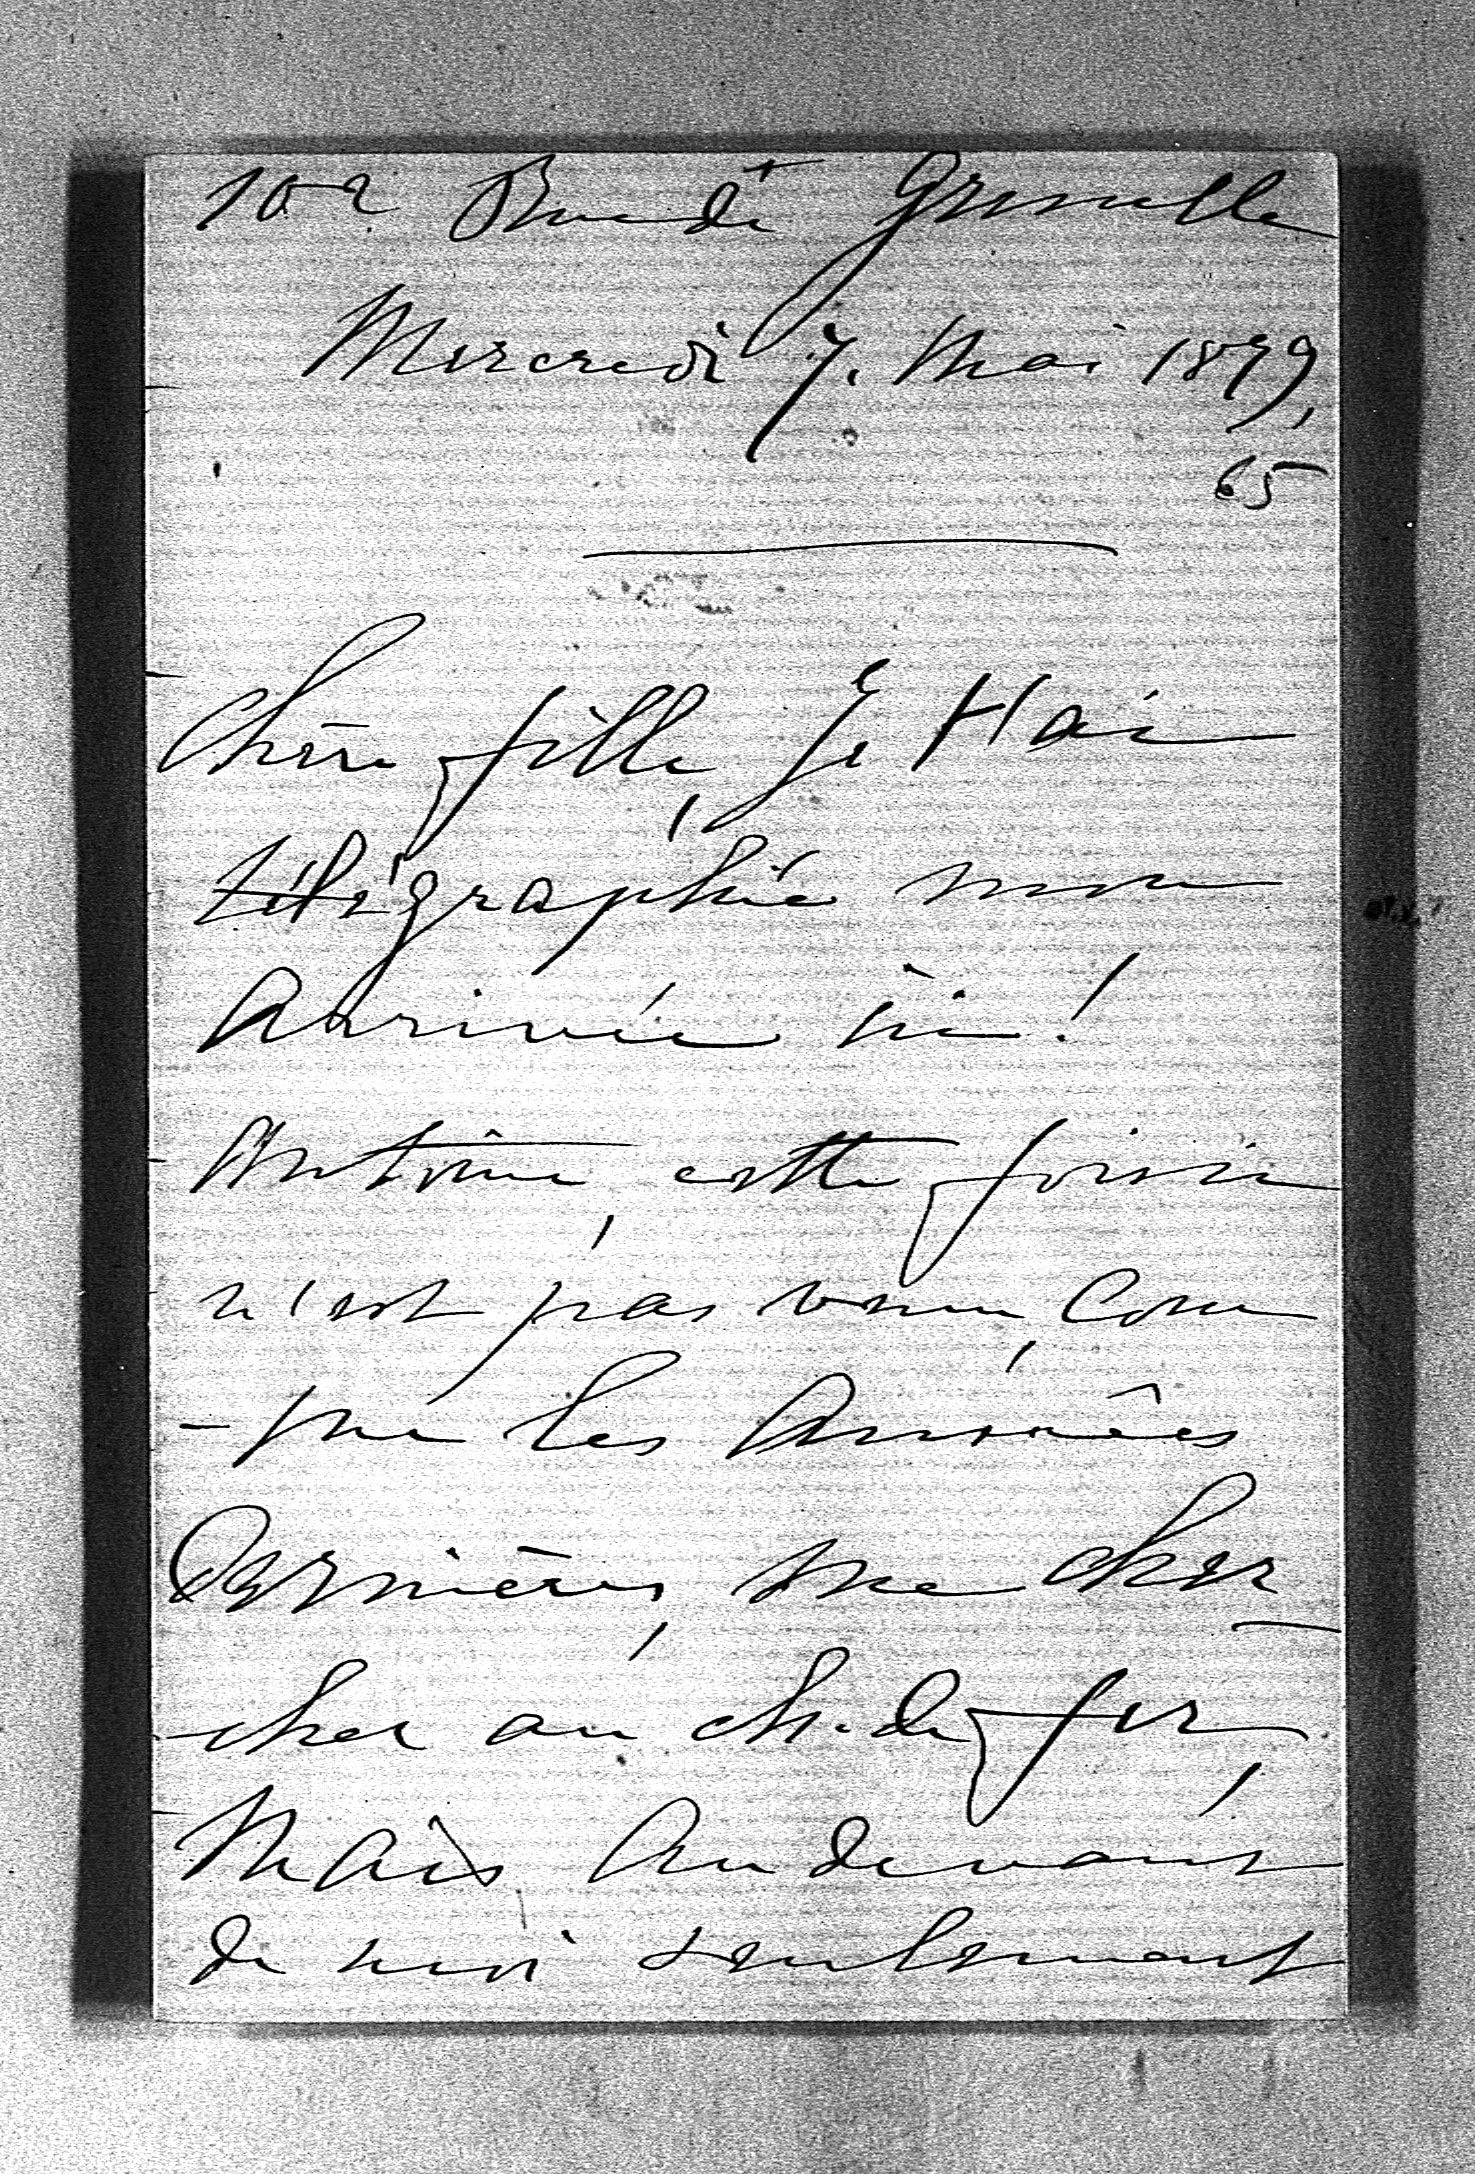 102 Rue de Grenelle
Mercredi 7. Mai 1879,
65
Chère fille, Je t'ai
télégraphié mon
Arrivée ici!
Antoine, cette fois ici
n'est pas venu, Com
-me les Années
Dernières, me cher
-cher au ch. de fer,
Mais Au devant
de moi seulement